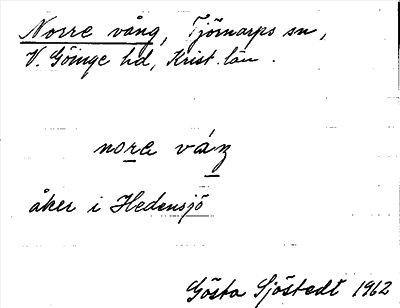 Norre vång, Tjörnarps sn,
V. Göinge hd, Krist. län.
nore váŋ
åker i Hedensjö
Gösta Sjöstedt 1962